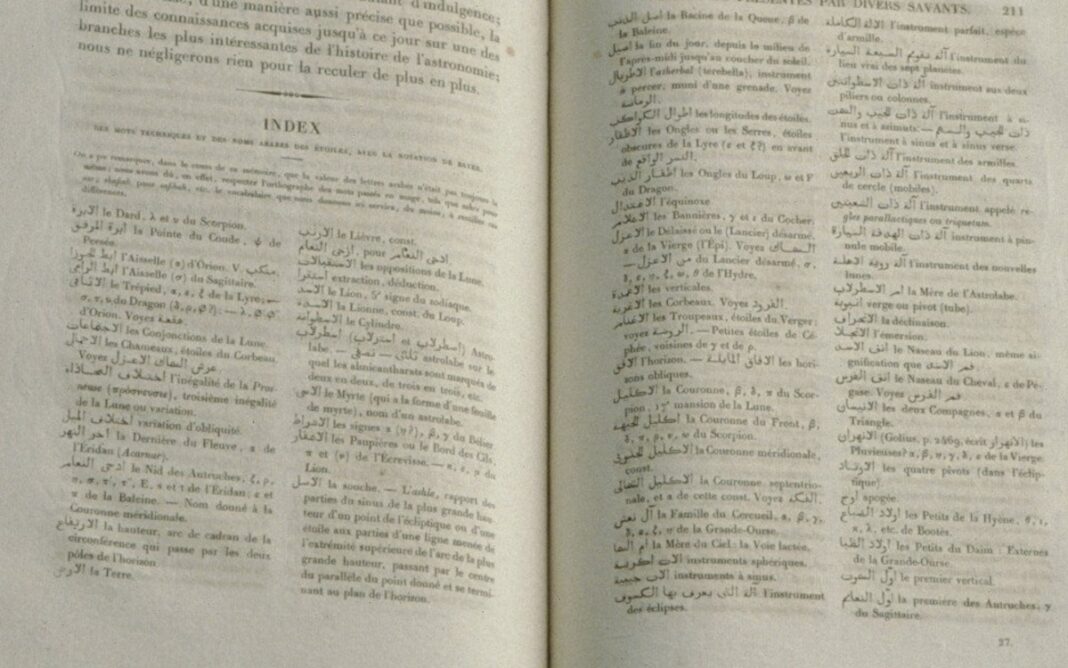 d'une manière aussi précise que possible, la
limite des connaissances acquises jusqu'à ce jour sur une des
branches les plus intéressantes de l'histoire de l'astronomie;
nous ne négligerons rien pour la reculer de plus en plus.
INDEX
DES MOTS TECHNIQUES ET DES NOMS ARABES DES ÉTOILES, AVEC LA NOTATION DE BAYER.
On a pu remarquer, dans le cours de ce mémoire, que la valeur des lettres arabes n'était pas toujours la
même; nous avons dû, en effet, respecter l'orthographe des mots passés en usage, tels que
pour etc. le vocabulaire que nous donnons ici servira, du moins, à rectifier ces
différences.
الابرة le Dard, λ et υ du Scorpion.
ابرة المرفق la Pointe du Coude, de
Persée.
ابط الجوزا l'Aisselle (α) d'Orion. V. منكب
ابط الرامى l'Aisselle (σ) du Sagittaire.
الاثافى le Trépied, de la Lyre; —
du Dragon
d'Orion. Voyez هقعة
الاجتماعات les Conjonctions de la Lune.
الاجمال les Chameaux, étoiles du Corbeau.
Voyez عرش السماك الاعزل
اختلاف المحاذاة l'inégalité de la Pros-
neuse troisième inégalité
de la Lune ou variation.
اختلاف الميل variation d'obliquité.
اخر النهر la Dernière du Fleuve, α de
l'Éridan (Acarnar).
ادحى النعام le Nid des Autruches, ζ, ρ,
de l'Éridan; ε et
π de la Baleine. — Nom donné à la
Couronne méridionale.
الارتفاع la hauteur, arc de cadran de la
circonférence qui passe par les deux
pôles de l'horizon.
الارض la Terre.
الارنب le Lièvre, const.
ازحى النعام, pour ادحى النعام.
الاستقبالات les oppositions de la Lune.
استقرا extraction, déduction.
الاسد le Lion, 5e signe du zodiaque.
الاسدة la Lionne, const. du Loup.
الاسطوانة le Cylindre.
اسطرلاب (اصطرلاب et استرلاب) Astro-
labe. — نصفى — ثلثى astrolabe sur le
quel les almicantharats sont marqués de
deux en deux, de trois en trois, etc.
الاسى le Myrte (qui a la forme d'une feuille
de myrte), nom d'un astrolabe.
الاشراط les signes α (η?), β, γ du Bélier
الاشفار les Paupières ou le Bord des Cils,
du
Lion.
الاصل la souche. — L'ashle, rapport des
parties du sinus de la plus grande hau-
teur d'un point de l'écliptique ou d'une
étoile aux parties d'une ligne menée de
l'extrémité supérieure de l'arc de la plus
grande hauteur, passant par le centre
du parallèle du point donné et se termi-
nant au plan de l'horizon.
PRÉSENTÉS PAR DIVERS SAVANTS. 211
اصل الذنب la Racine de la Queue, β de
la Baleine.
اصيل la fin du jour, depuis le milieu de
l'après-midi jusqu'au coucher du soleil.
الاطربال l'azherbel (terebella), instrument
à percer, muni d'une grenade. Voyez
الرمانة.
اطوال الكواكب les longitudes des étoiles.
الاظفار les Ongles ou les Serres, étoiles
obscures de la Lyre en avant
de النسر الواقع.
اظفار الذيب les Ongles du Loup, ω et F
du Dragon.
الاعتدال l'équinoxe.
الاعلام les Bannières, γ et ε du Cocher.
الاعزل le Délaissé ou le (Lancier) désarmé,
α de la Vierge (l'Épi). Voyez السماك
الاعزل — من du Lancier désarmé, σ,
de l'Hydre.
les verticales.
الاغربة les Corbeaux. Voyez القرود
الاغنام les Troupeaux, étoiles du Verger;
voyez الروضة. — Petites étoiles de Cé-
phée, voisines de γ et de ρ.
الافق l'horizon. — الافاق المايلة les hori-
zons obliques.
الاكليل la Couronne, β, δ, π du Scor-
pion, 17e mansion de la Lune.
اكليل الجبهة la Couronne du Front, β,
du Scorpion.
الاكليل الجنوبى la Couronne méridionale,
const.
الاكليل الشمالى la Couronne septentrio-
nale, et α de cette const. Voyez الفكة
آل نعش la Famille du Cercueil, α, β, γ,
de la Grande-Ourse.
ام السما la Mère du Ciel: la Voie lactée.
الات كرية instruments sphériques.
الات جيبية instruments à sinus.
آلة التى يعرف بها الكسوف l'instrument
des éclipses.
الالة الكاملة l'instrument parfait, espèce
d'armille.
آلة تقويم السبعة السيارة l'instrument du
lieu vrai des sept planètes.
آلة ذات الاسطوانتين instrument aux deux
piliers ou colonnes.
آلة ذات الجيب والسمت l'instrument à si-
nus et à azimuts; — ذات الجيب والسهم
l'instrument à sinus et à sinus verse.
آلة ذات الحلق l'instrument des armilles.
آلة ذات الربعين l'instrument des quarts
de cercle (mobiles).
آلة ذات الشعبتين instrument appelé re-
gles parallactiques ou triquetum.
آلة ذات الهدفة السيارة instrument à pin-
nule mobile.
آلة روية الاهلة l'instrument des nouvelles
lunes.
ام الاسطرلاب la Mère de l'Astrolabe.
انبوبة verge ou pivot (tube).
الانحراف la déclinaison.
الانجلا l'émersion.
انف الاسد le Naseau du Lion, même si-
gnification que فمر الاسد
انف الفرس le Naseau du Cheval, ε de Pé-
gase. Voyez فمر الفرس
الانيسان les deux Compagnes, α et β du
Triangle.
الانهران (Golius, p. 2469, écrit الانهرار) les
Pluvieuses? de la Vierge.
الاوتاد les quatre pivots (dans l'éclip-
tique)
اوج apogée.
اولاد الضباع les Petits de la Hyène, θ, ι,
κ, λ, etc. de Bootès.
اولاد الظبا les Petits du Daim: Externes
de la Grande-Ourse.
اول السموت le premier vertical.
اول النعام la première des Autruches, γ
du Sagittaire.
27.